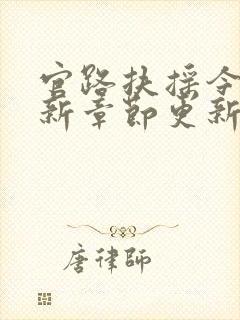 官路扶摇令
新章節更新
唐律師